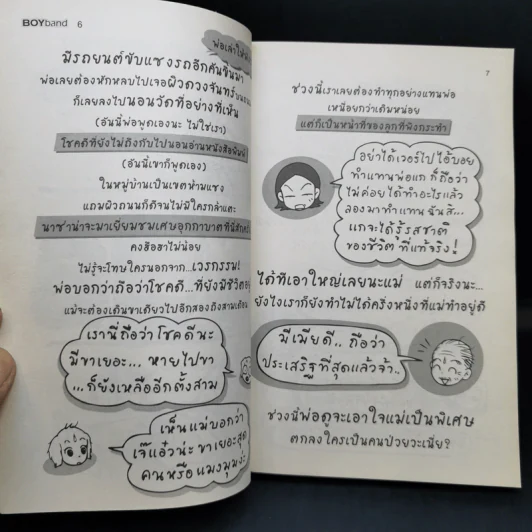 BOYband 6
พ่อเล่าให้ฟัง
มีรถยนต์ขับแซงรถอีกคันขึ้นมา
พ่อเลยต้องหักหลบไปเจอผิวดวงจันทร์บนถนน
ก็เลยลงไปนอนวัดที่อย่างที่เห็น
(อันนี้พ่อพูดเองนะ ไม่ใช่เรา)
โชคดีที่ยังไม่ถึงกับไปนอนอ่านหนังสือพิมพ์
(อันนี้เขาก็พูดเอง)
ในหมู่บ้านเป็นเขตห้ามแซง
แถมผิวถนนก็ดีจนไม่มีใครกล้าแตะ
นาซ่าน่าจะมาเยี่ยมชมเศษอุกกาบาตที่นี่สักครั้ง
คงฮือฮาไม่น้อย
ไม่รู้จะโทษใครนอกจาก...เวรกรรม!
พ่อบอกว่าถือว่าโชคดี...ที่ยังมีชีวิตอยู่
แม้จะต้องเดินขาเดียวไปอีกสองถึงสามเดือน
เรานี่ถือว่าโชคดีนะ
มีขาเยอะ... หายไปขา
...ก็ยังเหลืออีกตั้งสาม
เห็นแม่บอกว่า
เจ๊แอ๋วน่ะ ขาเยอะสุด
คนหรือแมงมุมง่ะ
7
ช่วงนี้เราเลยต้องทำทุกอย่างแทนพ่อ
เหนื่อยกว่าเดิมหน่อย
แต่ก็เป็นหน้าที่ของลูกที่พึงกระทำ
อย่าได้เวอร์ไป ไอ้บอย
ทำแทนพ่อแก ก็ถือว่า
ไม่ค่อยได้ทำอะไรแล้ว
ลองมาทำแทนฉันสิ...
แกจะได้รู้รสชาติ
ของชีวิต ที่แท้จริง!
ได้ทีเอาใหญ่เลยนะแม่ แต่ก็จริงนะ...
ยังไงเราก็ยังทำไม่ได้ครึ่งหนึ่งที่แม่ทำอยู่ดี
มีเมียดี.. ถือว่า
ประเสริฐที่สุดแล้วจ้า..
ช่วงนี้พ่อดูจะเอาใจแม่เป็นพิเศษ
ตกลงใครเป็นคนป่วยวะเนี่ย?